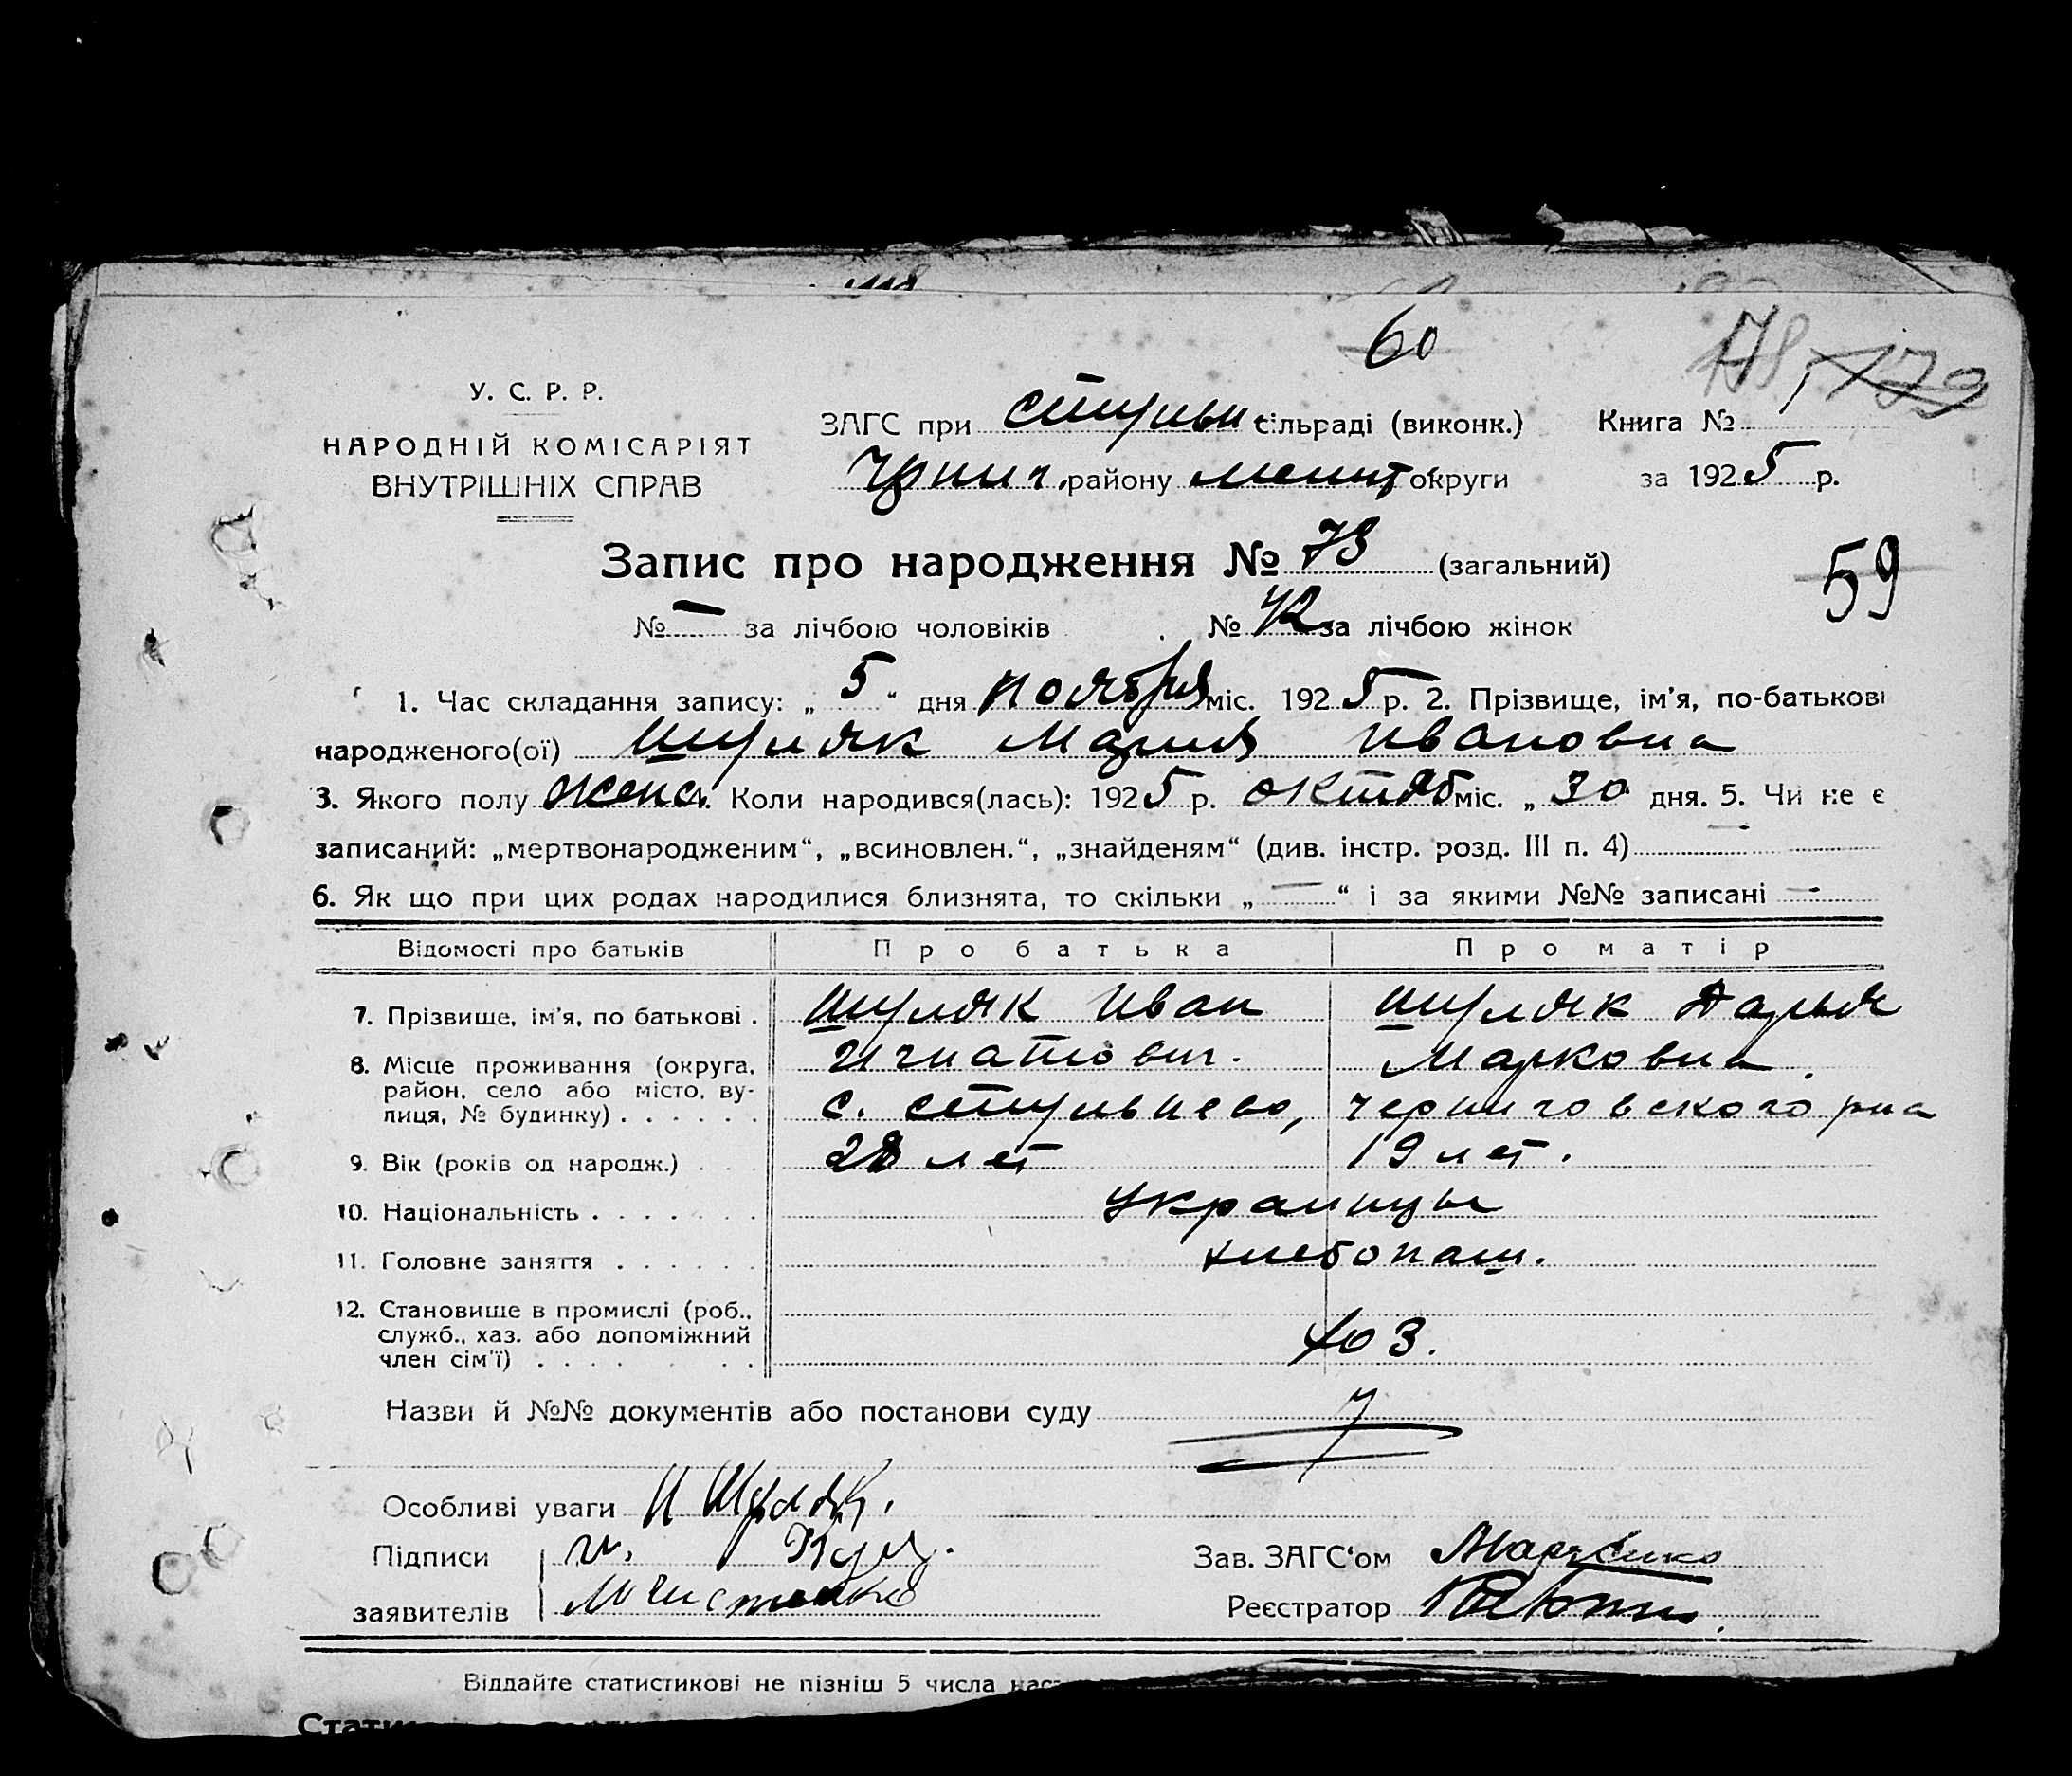 60
У. С. Р. Р.
НАРОДНІЙ КОМІСАРІЯТ
ВНУТРІШНІХ СПРАВ
ЗАГС при стульн сільраді (виконк.) Книга №
району мелит округи за 1925 р.
Запис про народження № 73 (загальний)
59
№ — за лічбою чоловіків № 42 за лічбою жінок
1. Час складання запису: „ 5 “ дня ноября міс. 1925 р. 2. Прізвище, ім'я, по-батькові
народженого(ої) Шуляк Мария Ивановна
3. Якого полу женс. Коли народився(лась): 1925 р. октяб міс. „ 30 дня. 5. Чи не є
записаний: „мертвонародженим“, „всиновлен.“, „знайденям“ (див. інстр. розд. III п. 4) —
6. Як що при цих родах народилися близнята, то скільки „ — “ і за якими №№ записані —
Відомості про батьків Про батька Про матір
7. Прізвише, ім'я, по батькові . Шуляк Иван Шуляк Дарья
Игнатович. Марковна
8. Місце проживання (округа, район, село або місто, вулиця, № будинку) . . . . . . с. Стульнево, черниговского рна
9. Вік (років од народж.) . . 28 лет 19 лет.
10. Національність . . . . . . . украинцы
11. Головне заняття . . . . . . хлебопаш.
12. Становише в промислі (роб., служб., хаз. або допоміжний член сім'ї) . . . . . . хоз.
Назви й №№ документів або постанови суду
Особливі уваги И Шуляк.
Підписи
заявителів
Зав. ЗАГС'ом
Реєстратор
Віддайте статистикові не пізніш 5 числа